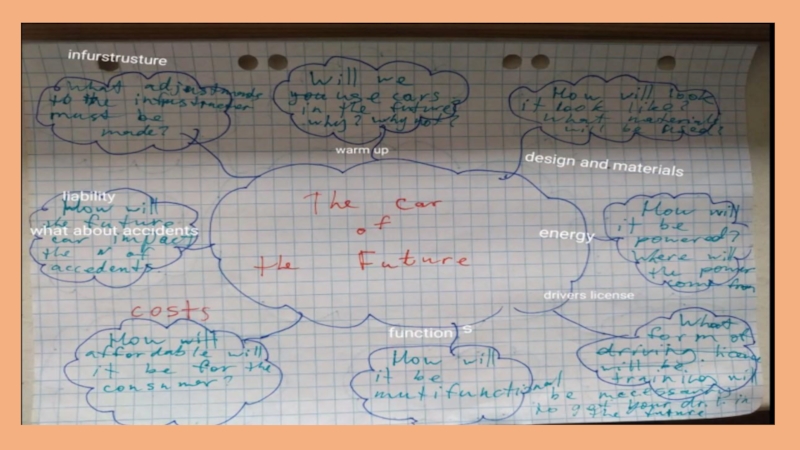 infurstrusture
What adjustmends
to the infrustructer
must be
made?
Will we
you use cars
in the future?
why? why not?
warm up
How will look
it look like?
What materials
will be fused?
design and materials
liability
How will
the future
what about accidents
car impact
the of
accedents
The car
of
the Future
energy
How will
it be
powered?
Where will
the power
come from
drivers license
costs
How will
affordable will
it be for the
consumer?
functions
How will
it be
mutifunctional
What
form of
driving licence
will be
training will
be necessary
to get your in
the future